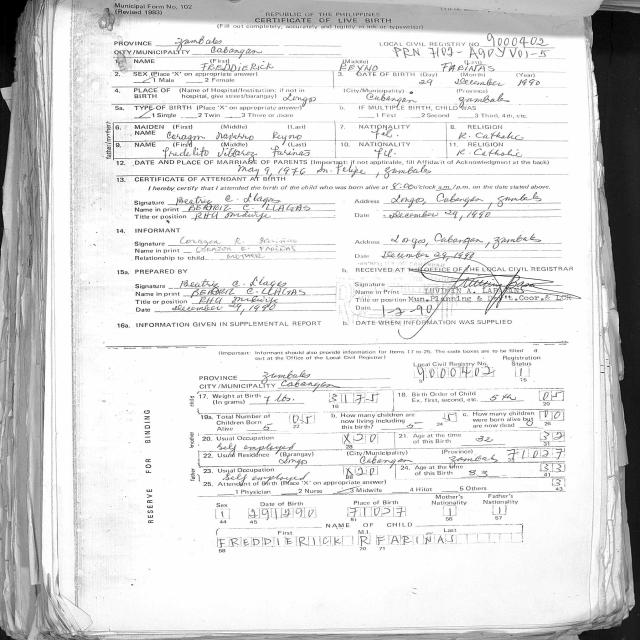 Municipal Form No. 102
(Revised 1983)
REPUBLIC OF THE PHILIPPINES
CERTIFICATE OF LIVE BIRTH
(Fill out completely, accurately and legibly in ink or typewriter)
PROVINCE Zambales
LOCAL CIVIL REGISTRY NO 9000402
CITY/MUNICIPALITY Cabangan
1. NAME (First) (Middle) (Last)
FREDDIERICK REYNO FARINAS
2. SEX (Place "X" on appropriate answer)
1 Male 2 Female
3. DATE OF BIRTH (Day) (Month) (Year)
29 December 1990
4. PLACE OF BIRTH (Name of Hospital/Institution; if not in hospital, give street/barangay) (City/Municipality) (Province)
Longos Cabangan Zambales
5a. TYPE OF BIRTH (Place "X" on appropriate answer)
1 Single 2 Twin 3 Three or more
b. IF MULTIPLE BIRTH, CHILD WAS
1 First 2 Second 3 Third, 4th etc.
6. MAIDEN NAME (First) (Middle) (Last)
Reyno
7. NATIONALITY
Fil.
8. RELIGION
R. Catholic
9. NAME (First) (Middle) (Last)
Fredelito Farinas
10. NATIONALITY
Fil.
11. RELIGION
R. Catholic
12. DATE AND PLACE OF MARRIAGE OF PARENTS (Important: if not applicable, fill Affidavit of Acknowledgment at the back)
May 9, 1976 Sn. Felipe, Zambales
13. CERTIFICATE OF ATTENDANT AT BIRTH
I hereby certify that I attended the birth of the child who was born alive at 8:00 o'clock am/p.m. on the date stated above.
Signature Beatriz C. Llagas
Address Longos, Cabangan, Zambales
Name in print BEATRIZ C. LLAGAS
Title or position RHU Midwife
Date December 29, 1990
14. INFORMANT
Signature
Address Longos, Cabangan, Zambales
Name in print
Relationship to child MOTHER
Date December 29, 1990
15a. PREPARED BY
b. RECEIVED AT THE OFFICE OF THE LOCAL CIVIL REGISTRAR
Signature Beatriz C. Llagas
Signature
Name in Print BEATRIZ C. LLAGAS
Name in Print
Title or position RHU Midwife
Title or position Mun. Planning &
Date December 29, 1990
Date 1-2-90
16a. INFORMATION GIVEN IN SUPPLEMENTAL REPORT
b. DATE WHEN INFORMATION WAS SUPPLIED
(Important: Informant should also provide information for Items 17 to 25. The code boxes are to be filled
out at the Office of the Local Civil Registrar)
PROVINCE Zambales
Local Civil Registry No. 9000402
STATUS 1
CITY/MUNICIPALITY Cabangan
17. Weight at Birth (In grams) 7 lbs. 3175
18. Birth Order of Child Ex. first, second, etc. 5th 05
19a. Total Number of Children Born Alive 5 05
b. How many children now living including this birth? 5
c. How many children were born alive but are now dead 0 00
20. Usual Occupation
Self employed X20
21. Age at the time of this Birth 32 32
22. Usual Residence (Barangay) (City/Municipality) (Province)
Longos Cabangan Zambales 71027
23. Usual Occupation
Self employed X20
24. Age at the time of this Birth 33
25. Attendant of Birth (Place "X" on appropriate answer)
1 Physician 2 Nurse 3 Midwife 4 Hilot 5 Others 3
Sex Date of Birth Place of Birth Mother's Nationality Father's Nationality
1 291290 71027 1 1
NAME OF CHILD
First M.I. Last
FREDDIERICK R FARINAS
RESERVE FOR BINDING